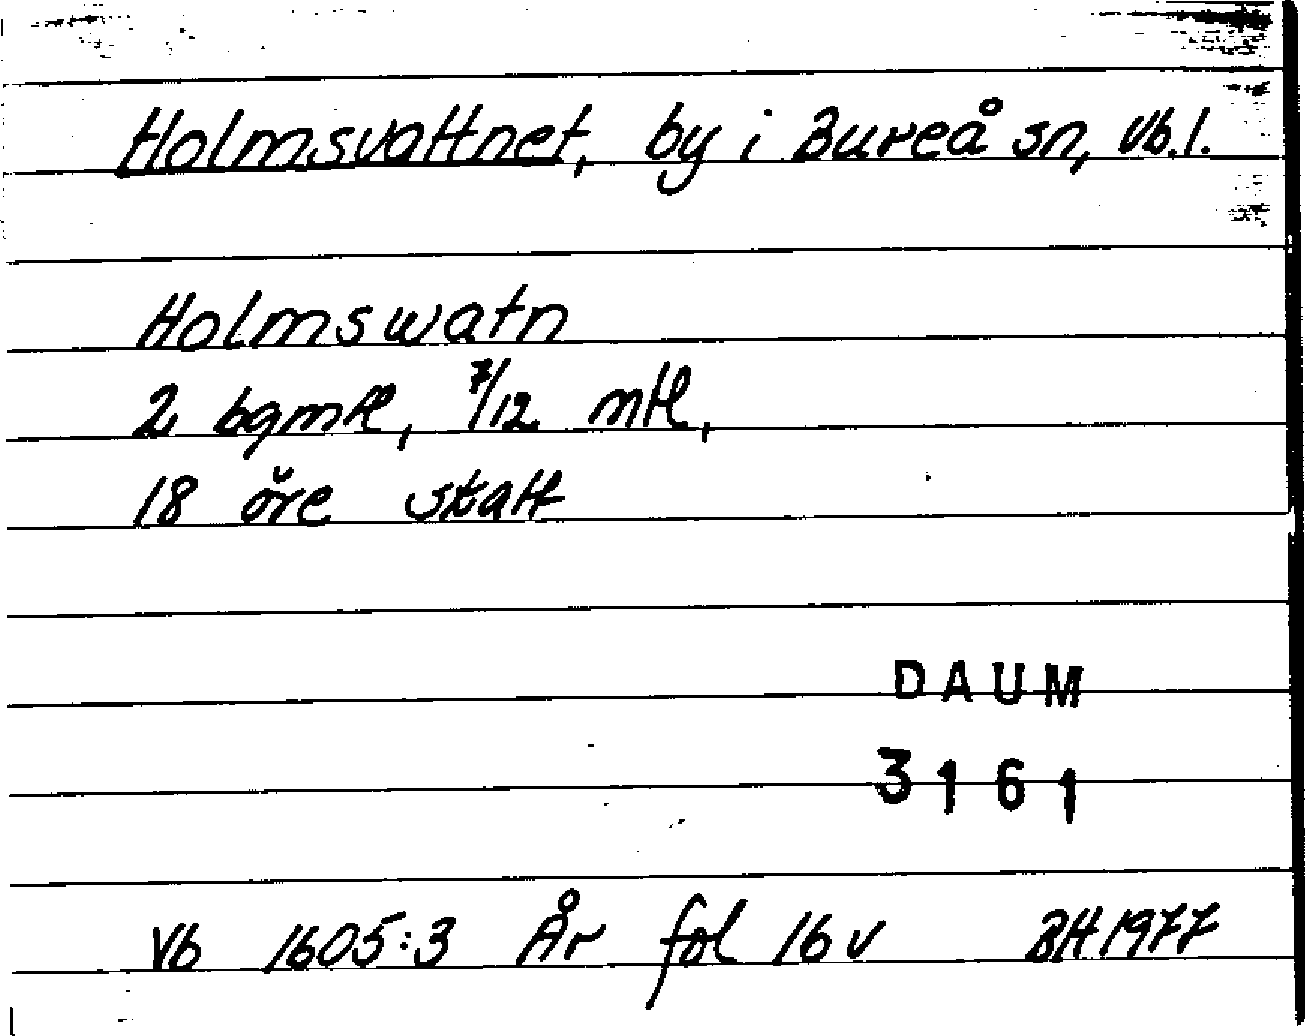 Holmsvattnet, by i Bureå sn, Vb.l.
Holmswatn
2 bgmtl, 7/12 mtl,
18 öre skatt
DAUM
3161
Vb 1605:3 År fol 16v BH 1977